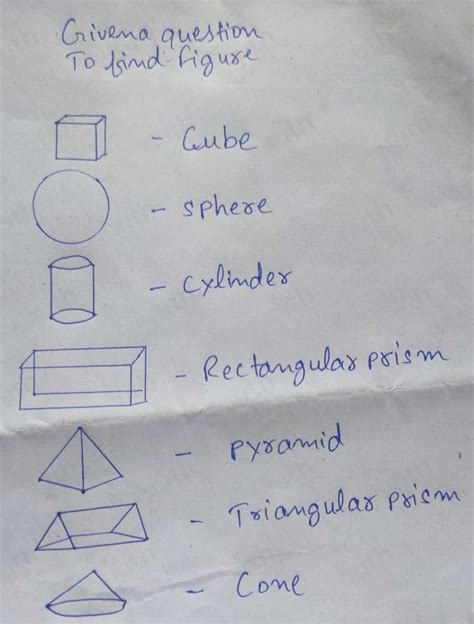 Givena question
To find figure
- Cube
- sphere
- Cylinder
- Rectangular prism
- pyramid
- Triangular prism
- Cone